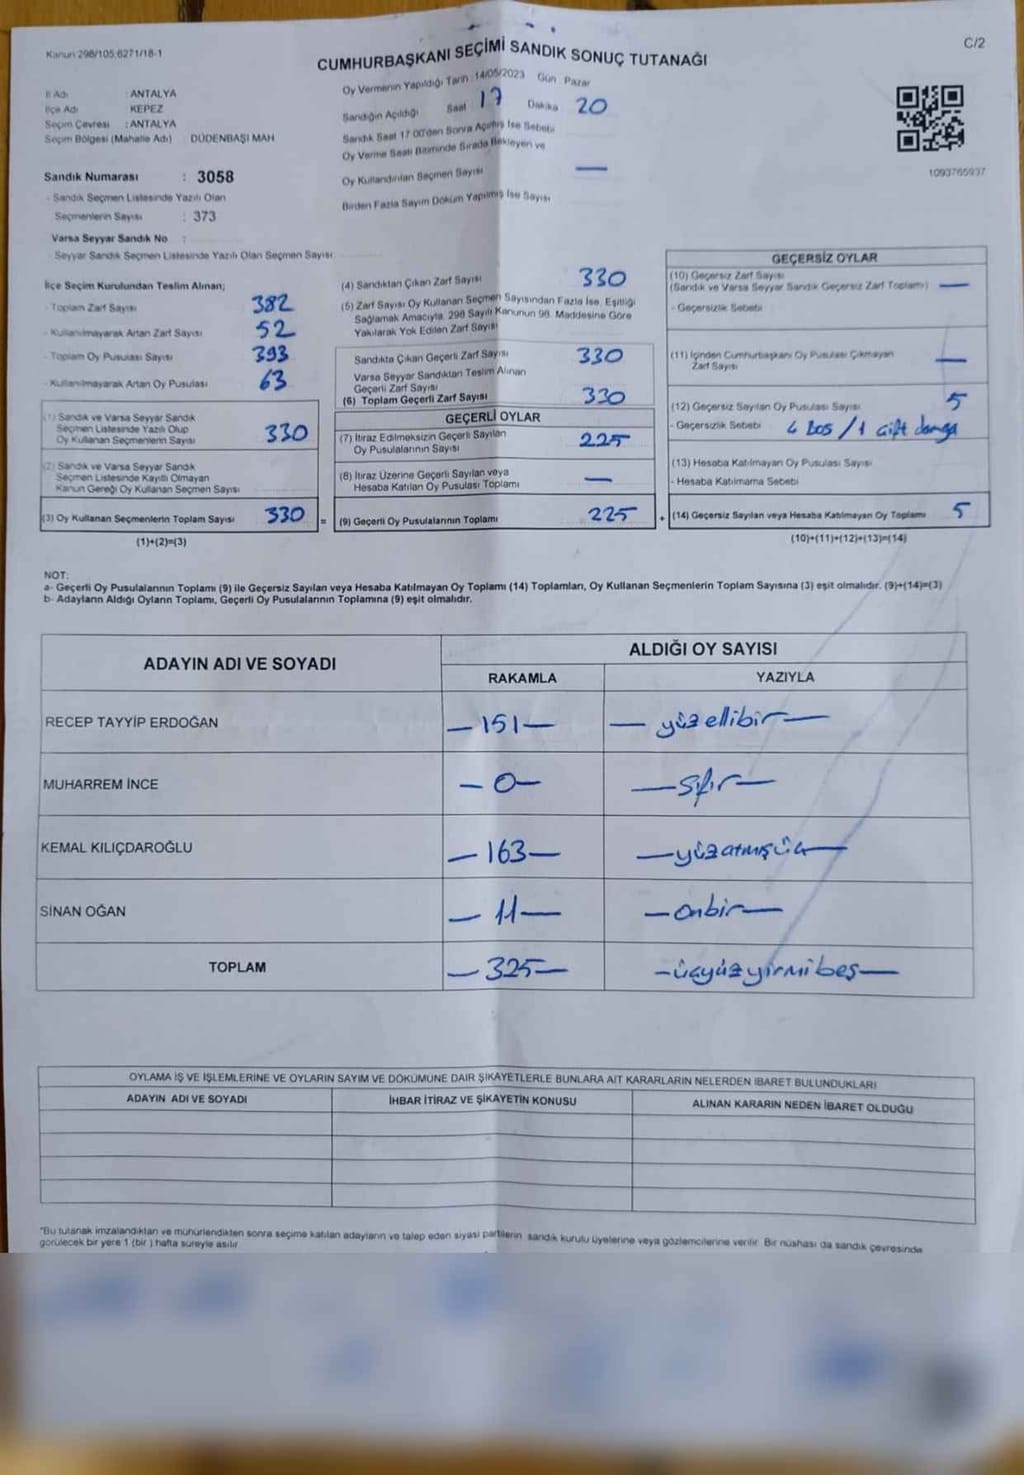 Kanun 298/105,6271/18-1
C/2
CUMHURBAŞKANI SEÇİMİ SANDIK SONUÇ TUTANAĞI
İl Adı : ANTALYA
İlçe Adı : KEPEZ
Seçim Çevresi : ANTALYA
Seçim Bölgesi (Mahalle Adı) DÜDENBAŞI MAH
Sandık Numarası : 3058
- Sandık Seçmen Listesinde Yazılı Olan
Seçmenlerin Sayısı : 373
Varsa Seyyar Sandık No :
- Seyyar Sandık Seçmen Listesinde Yazılı Olan Seçmen Sayısı
Oy Vermenin Yapıldığı Tarih : 14/05/2023 Gün Pazar
Sandığın Açıldığı Saat 17 Dakika 20
Sandık Saat 17.00'den Sonra Açılmış İse Sebebi
Oy Verme Saati Bitiminde Sırada Bekleyen ve
Oy Kullandırılan Seçmen Sayısı —
Birden Fazla Sayım Döküm Yapılmış İse Sayısı
1093765937
İlçe Seçim Kurulundan Teslim Alınan;
- Toplam Zarf Sayısı 382
- Kullanılmayarak Artan Zarf Sayısı 52
- Toplam Oy Pusulası Sayısı 393
- Kullanılmayarak Artan Oy Pusulası 63
(1) Sandık ve Varsa Seyyar Sandık
Seçmen Listesinde Yazılı Olup
Oy Kullanan Seçmenlerin Sayısı 330
(2) Sandık ve Varsa Seyyar Sandık
Seçmen Listesinde Kayıtlı Olmayan
Kanun Gereği Oy Kullanan Seçmen Sayısı
(3) Oy Kullanan Seçmenlerin Toplam Sayısı 330 =
(1)+(2)=(3)
(4) Sandıktan Çıkan Zarf Sayısı 330
(5) Zarf Sayısı Oy Kullanan Seçmen Sayısından Fazla İse, Eşitliği
Sağlamak Amacıyla, 298 Sayılı Kanunun 98. Maddesine Göre
Yakılarak Yok Edilen Zarf Sayısı
Sandıkta Çıkan Geçerli Zarf Sayısı 330
Varsa Seyyar Sandıktan Teslim Alınan
Geçerli Zarf Sayısı
(6) Toplam Geçerli Zarf Sayısı 330
GEÇERLİ OYLAR
(7) İtiraz Edilmeksizin Geçerli Sayılan
Oy Pusulalarının Sayısı 225
(8) İtiraz Üzerine Geçerli Sayılan veya
Hesaba Katılan Oy Pusulası Toplamı —
(9) Geçerli Oy Pusulalarının Toplamı 225 +
GEÇERSİZ OYLAR
(10) Geçersiz Zarf Sayısı
(Sandık ve Varsa Seyyar Sandık Geçersiz Zarf Toplamı) —
- Geçersizlik Sebebi
(11) İçinden Cumhurbaşkanı Oy Pusulası Çıkmayan
Zarf Sayısı —
(12) Geçersiz Sayılan Oy Pusulası Sayısı 5
- Geçersizlik Sebebi 4 Boş / 1 Çift damga
(13) Hesaba Katılmayan Oy Pusulası Sayısı
- Hesaba Katılmama Sebebi
(14) Geçersiz Sayılan veya Hesaba Katılmayan Oy Toplamı 5
(10)+(11)+(12)+(13)=(14)
NOT:
a- Geçerli Oy Pusulalarının Toplamı (9) ile Geçersiz Sayılan veya Hesaba Katılmayan Oy Toplamı (14) Toplamları, Oy Kullanan Seçmenlerin Toplam Sayısına (3) eşit olmalıdır. (9)+(14)=(3)
b- Adayların Aldığı Oyların Toplamı, Geçerli Oy Pusulalarının Toplamına (9) eşit olmalıdır.
ADAYIN ADI VE SOYADI ALDIĞI OY SAYISI
RAKAMLA YAZIYLA
RECEP TAYYİP ERDOĞAN —151— — yüzellibir —
MUHARREM İNCE —0— — sıfır —
KEMAL KILIÇDAROĞLU —163— — yüzatmışüç —
SİNAN OĞAN —11— — onbir —
TOPLAM —325— — üçyüzyirmibeş —
OYLAMA İŞ VE İŞLEMLERİNE VE OYLARIN SAYIM VE DÖKÜMÜNE DAİR ŞİKAYETLERLE BUNLARA AİT KARARLARIN NELERDEN İBARET BULUNDUKLARI
ADAYIN ADI VE SOYADI İHBAR İTİRAZ VE ŞİKAYETİN KONUSU ALINAN KARARIN NEDEN İBARET OLDUĞU
*Bu tutanak imzalandıktan ve mühürlendikten sonra seçime katılan adayların ve talep eden siyasi partilerin sandık kurulu üyelerine veya gözlemcilerine verilir. Bir nüshası da sandık çevresinde
görülecek bir yere 1 (bir) hafta süreyle asılır.